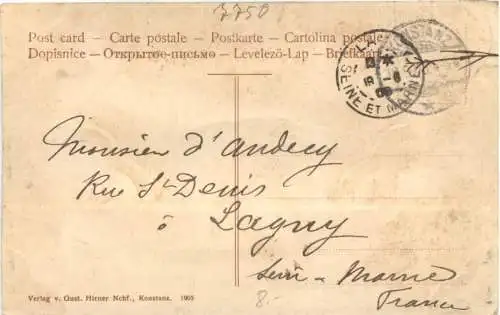 7750
Post card – Carte postale – Postkarte – Cartolina postale
Dopisnice – Открытое-письмо – Levelező-Lap – Briefkaart
SEINE ET MARNE
Monsieur d'Andecy
Rue St Denis
à Lagny
Seine-Marne
France
Verlag v. Gust. Hirner Nchf., Konstanz. 1905
8.-